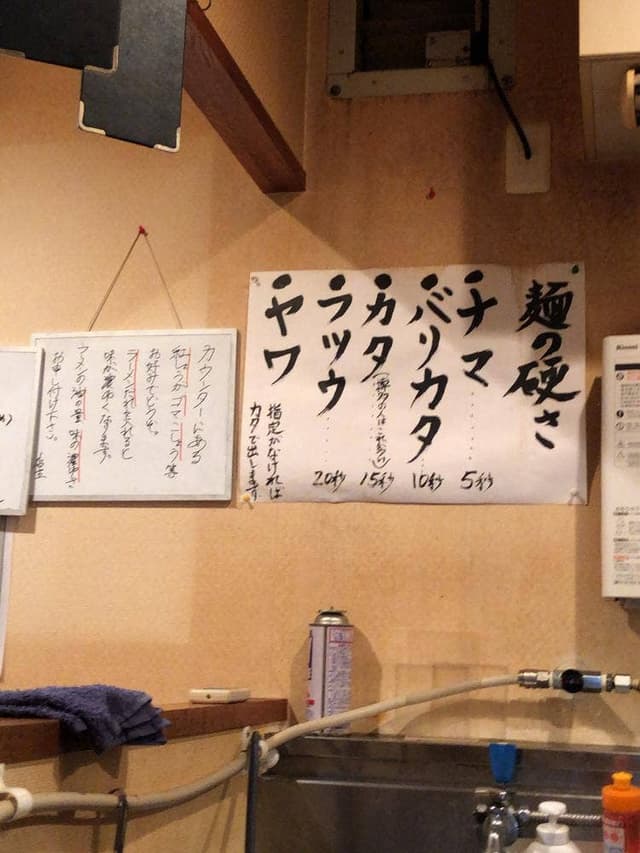 麺の硬さ
ナマ……5秒
バリカタ…10秒
カタ 15秒
フツウ……20秒
ヤワ
指定がなければ
カタで出します
カウンターにある
紅しょうが ゴマ こしょう 等
お好みでどうぞ。
ラーメンだれを入れると
味が濃ゆくなります。
ラーメンの油の量 味の濃ゆさ
お申し付け下さい。
店主
Rinnai